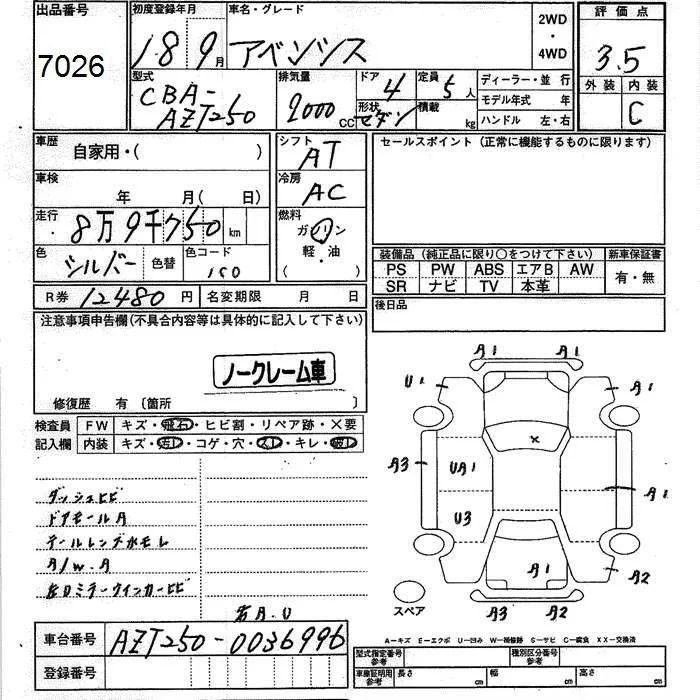 出品番号
7026
初度登録年月
18 9月
車名・グレード
アベンシス
2WD
・
4WD
評価点
3.5
外装 内装
C
型式
CBA-
AZT250
排気量
2000
CC
ドア
4
形状
セダン
定員
5人
積載
kg
ディーラー・並 行
モデル年式 年
ハンドル 左・右
車歴
自家用・( )
シフト
AT
セールスポイント (正常に機能するものに限ります)
車検
年 月( 日)
冷房
AC
走行
8万9千750km
燃料
ガソリン
軽・油
( )
色
シルバー
色替
色コード
1C0
装備品 (純正品に限り○をつけて下さい)
新車保証書
PS PW ABS エアB AW
SR ナビ TV 本革
有・無
R券 12480円
名変期限 月 日
後日品
注意事項申告欄(不具合内容等は具体的に記入して下さい)
ノークレーム車
修復歴 有 〔箇所 〕
検査員
記入欄
FW キズ・飛石・ヒビ割・リペア跡・×要
内装 キズ・汚レ・コゲ・穴・スレ・キレ・破レ
ダッシュヒビ
ドアモールA
テールレンズ水モレ
A/W.A
右ロミラーウインカーヒビ
右A.U
A1 A1
U1 A1
×
A3 UA1
A1
U3
A1 A2
スペア
A3 A2
車台番号
AZT250-0036996
登録番号
A―キズ E―エクボ U―凹み W―補修跡 S―サビ C―腐食 XX―交換済
型式指定番号
参考
種別区分番号
参考
車庫証明用
参考
長さ cm
幅 cm
高さ cm